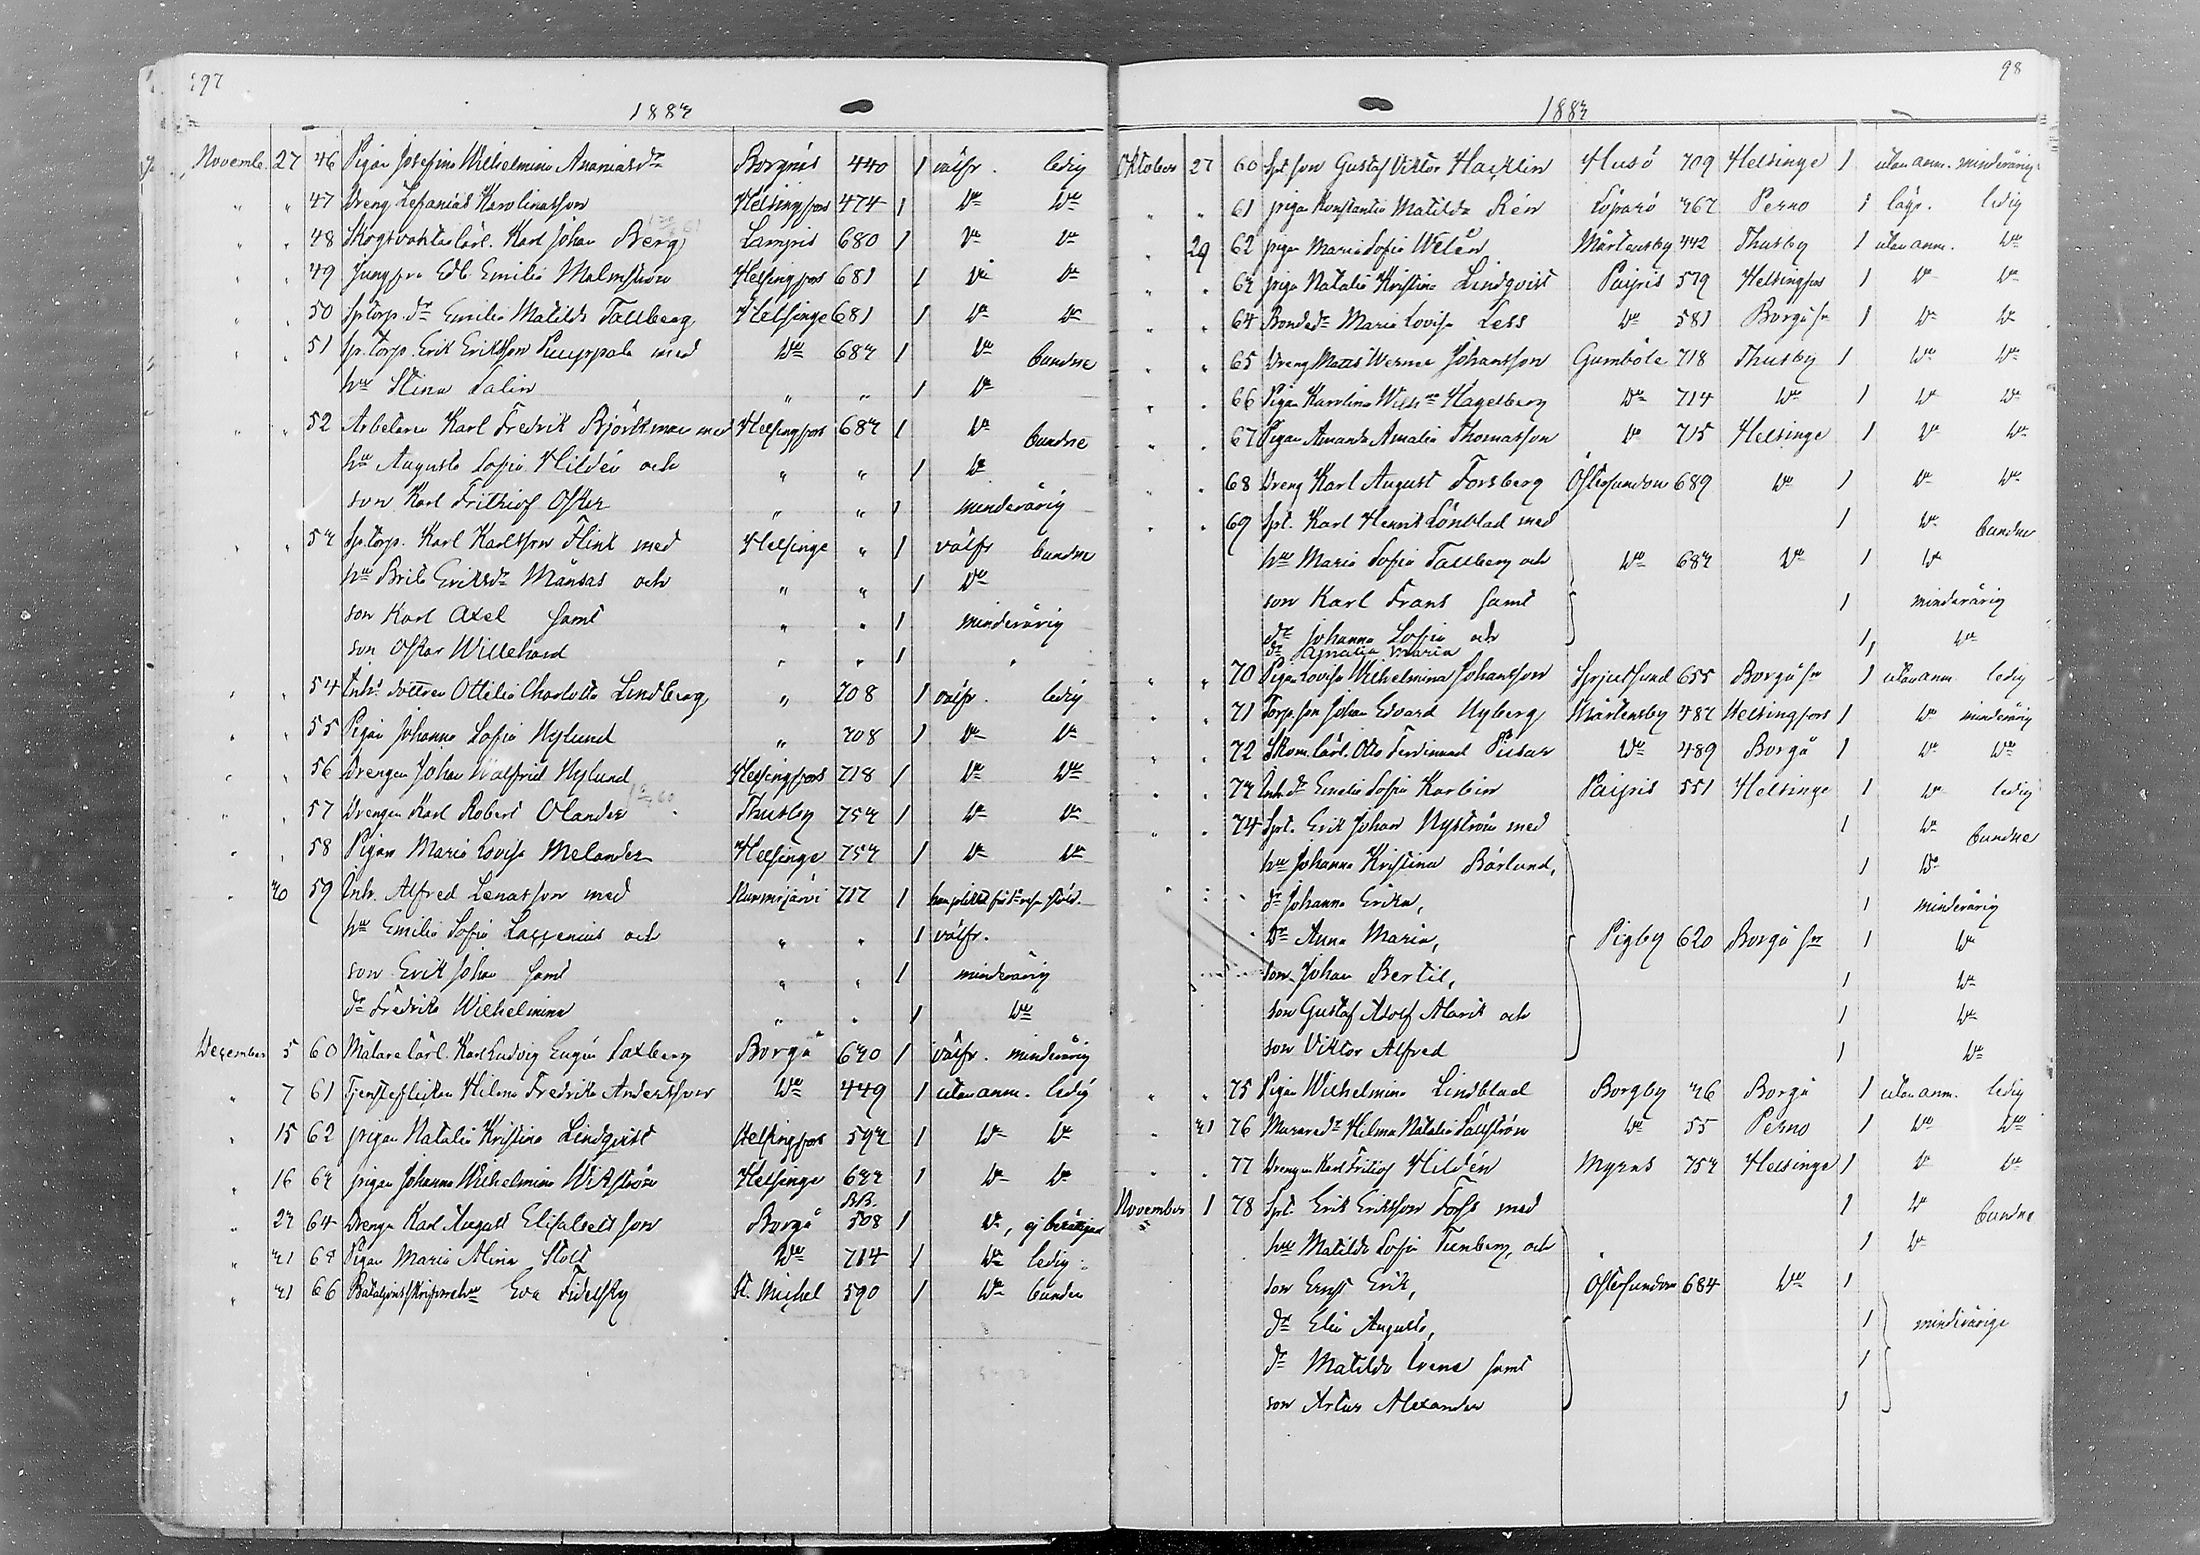 97
1883
November 27 46 Pigan Josefina Wilhelmina Ananiasdr Borgnäs 440 1 välfr. ledig
" " 47 Dreng Zefanias Karolinasson Helsingfors 474 1 Do Do
" " 48 Skogsvaktarlärl. Karl Johan Berg Lampis 680 1 Do Do
" " 49 Jungfru Edl. Emilia Malmström Helsingfors 681 1 Do Do
" " 50 Sp.torp. dr Emilia Matilda Tallberg Helsinge 681 1 Do Do
" " 51 Sp.torp. Erik Eriksson Puuppola med Do 683 1 Do bundne
hu Stina Talin " " 1 Do
" " 52 Arbetaren Karl Fredrik Björkman med Helsingfors 683 1 Do bundne
hu Augusta Sofia Hildén och " " 1 Do
son Karl Frithiof Oskar " " 1 minderårig
" " 53 Sp.torp. Karl Karlsson Flink med Helsinge " 1 välfr bundne
hu Brita Eriksdr Månsas och " " 1 Do
son Karl Axel samt " " 1 minderårig
son Oskar Willehard " " 1 "
" " 54 Inh. dottren Ottilia Charlotta Lindberg " 708 1 välfr. ledig
" " 55 Pigan Johanna Sofia Nylund " 708 1 Do Do
" " 56 Drengen Johan Walfrid Nylund Helsingfors 718 1 Do Do
" " 57 Drengen Karl Robert Olander Thusby 753 1 Do Do
" " 58 Pigan Maria Lovisa Melander Helsinge 753 1 Do Do
" 30 59 Inh. Alfred Lenasson med Nurmijärvi 717 1
hu Emilia Sofia Laggenius och " " 1 välfr.
son Erik Johan samt " " 1 minderårig
dr Fredrika Wilhelmina " " 1 Do
December 5 60 Målarelärl. Karl Ludvig Eugén Saxberg Borgå 630 1 välfr. minderårig
" 7 61 Tjensteflickan Hilma Fredrika Andersson Do 449 1 utan anm. ledig
" 15 62 pigan Natalia Kristina Lindqvist Helsingfors 593 1 Do Do
" 16 63 pigan Johanna Wilhelmina Wikström Helsinge 633 1 Do Do
" 23 64 Drengen Karl August Elisabetsson Borgå BB. 508 1 Do,
" 31 65 Pigan Maria Alina Stolt Do 714 1 Do ledig
" 31 66 Bataljonsskrifvarehu Eva Fidelsky St. Michel 590 1 Do bunden
98
1883
Oktober 27 60 Spt. son Gustaf Viktor Hacklin Husö 709 Helsinge 1 utan anm. minderårig
" " 61 pigan Konstantia Matilda Rén Löparö 367 Perno 1 lägr. ledig
" 29 62 pigan Maria Sofia Welén Mårtensby 442 Thusby 1 utan anm. Do
" " 63 pigan Natalia Kristina Lindqvist Paipis 579 Helsingfors 1 Do Do
" " 64 Bondedr Maria Lovisa Less Do 581 Borgå sn 1 Do Do
" " 65 Dreng Matts Werner Johansson Gumböle 718 Thusby 1 Do Do
" " 66 Pigan Karolina Wilhna Hagelberg Do 714 Do 1 Do Do
" " 67 Pigan Amanda Amalia Thomasson Do 715 Helsinge 1 Do Do
" " 68 Dreng Karl August Forsberg Östersundom 689 Do 1 Do Do
" " 69 Spt. Karl Henrik Lönblad med 1 Do bundne
hu Maria Sofia Tallberg och Do 683 Do 1 Do
son Karl Frans samt 1 minderårig
dr Johanna Sofia och 1, Do
dr Amalia Maria
" " 70 Pigan Lovisa Wilhelmina Johansson Spjutsund 655 Borgå sn 1 utan anm ledig
" " 71 Torp. son Johan Edvard Nyberg Mårtensby 483 Helsingfors 1 Do minderårig
" " 72 Skom. lärl. Otto Ferdinand Pusar Do 489 Borgå 1 Do Do
" " 73 Inh. dr Emilia Sofia Karlein Paipis 551 Helsinge 1 Do ledig
" " 74 Spt. Erik Johan Nyström med 1 Do bundne
hu Johanna Kristina Bärlund, 1 Do
dr Johanna Erika, 1 minderårig
Dr Anna Maria, Pigby 620 Borgå sn 1 Do
son Johan Bertil, 1 Do
son Gustaf Adolf Alarik och 1 Do
son Viktor Alfred 1 Do
" " 75 Pigan Wilhelmina Lindblad Borgby 36 Borgå 1 utan anm. ledig
" 31 76 Muraredr Hilma Natalia Sällström Do 55 Perno 1 Do Do
" " 77 Drengen Karl Fritiof Hildén Myras 753 Helsinge 1 Do Do
November 1 78 Spt. Erik Eriksson Forss med 1 Do bundne
hu Matilda Sofia Tenberg, och 1 Do
son Ernst Erik, Östersundom 684 Do 1
dr Elin Augusta, 1 minderårige
dr Matilda Irene samt 1
son Artur Alexander 1